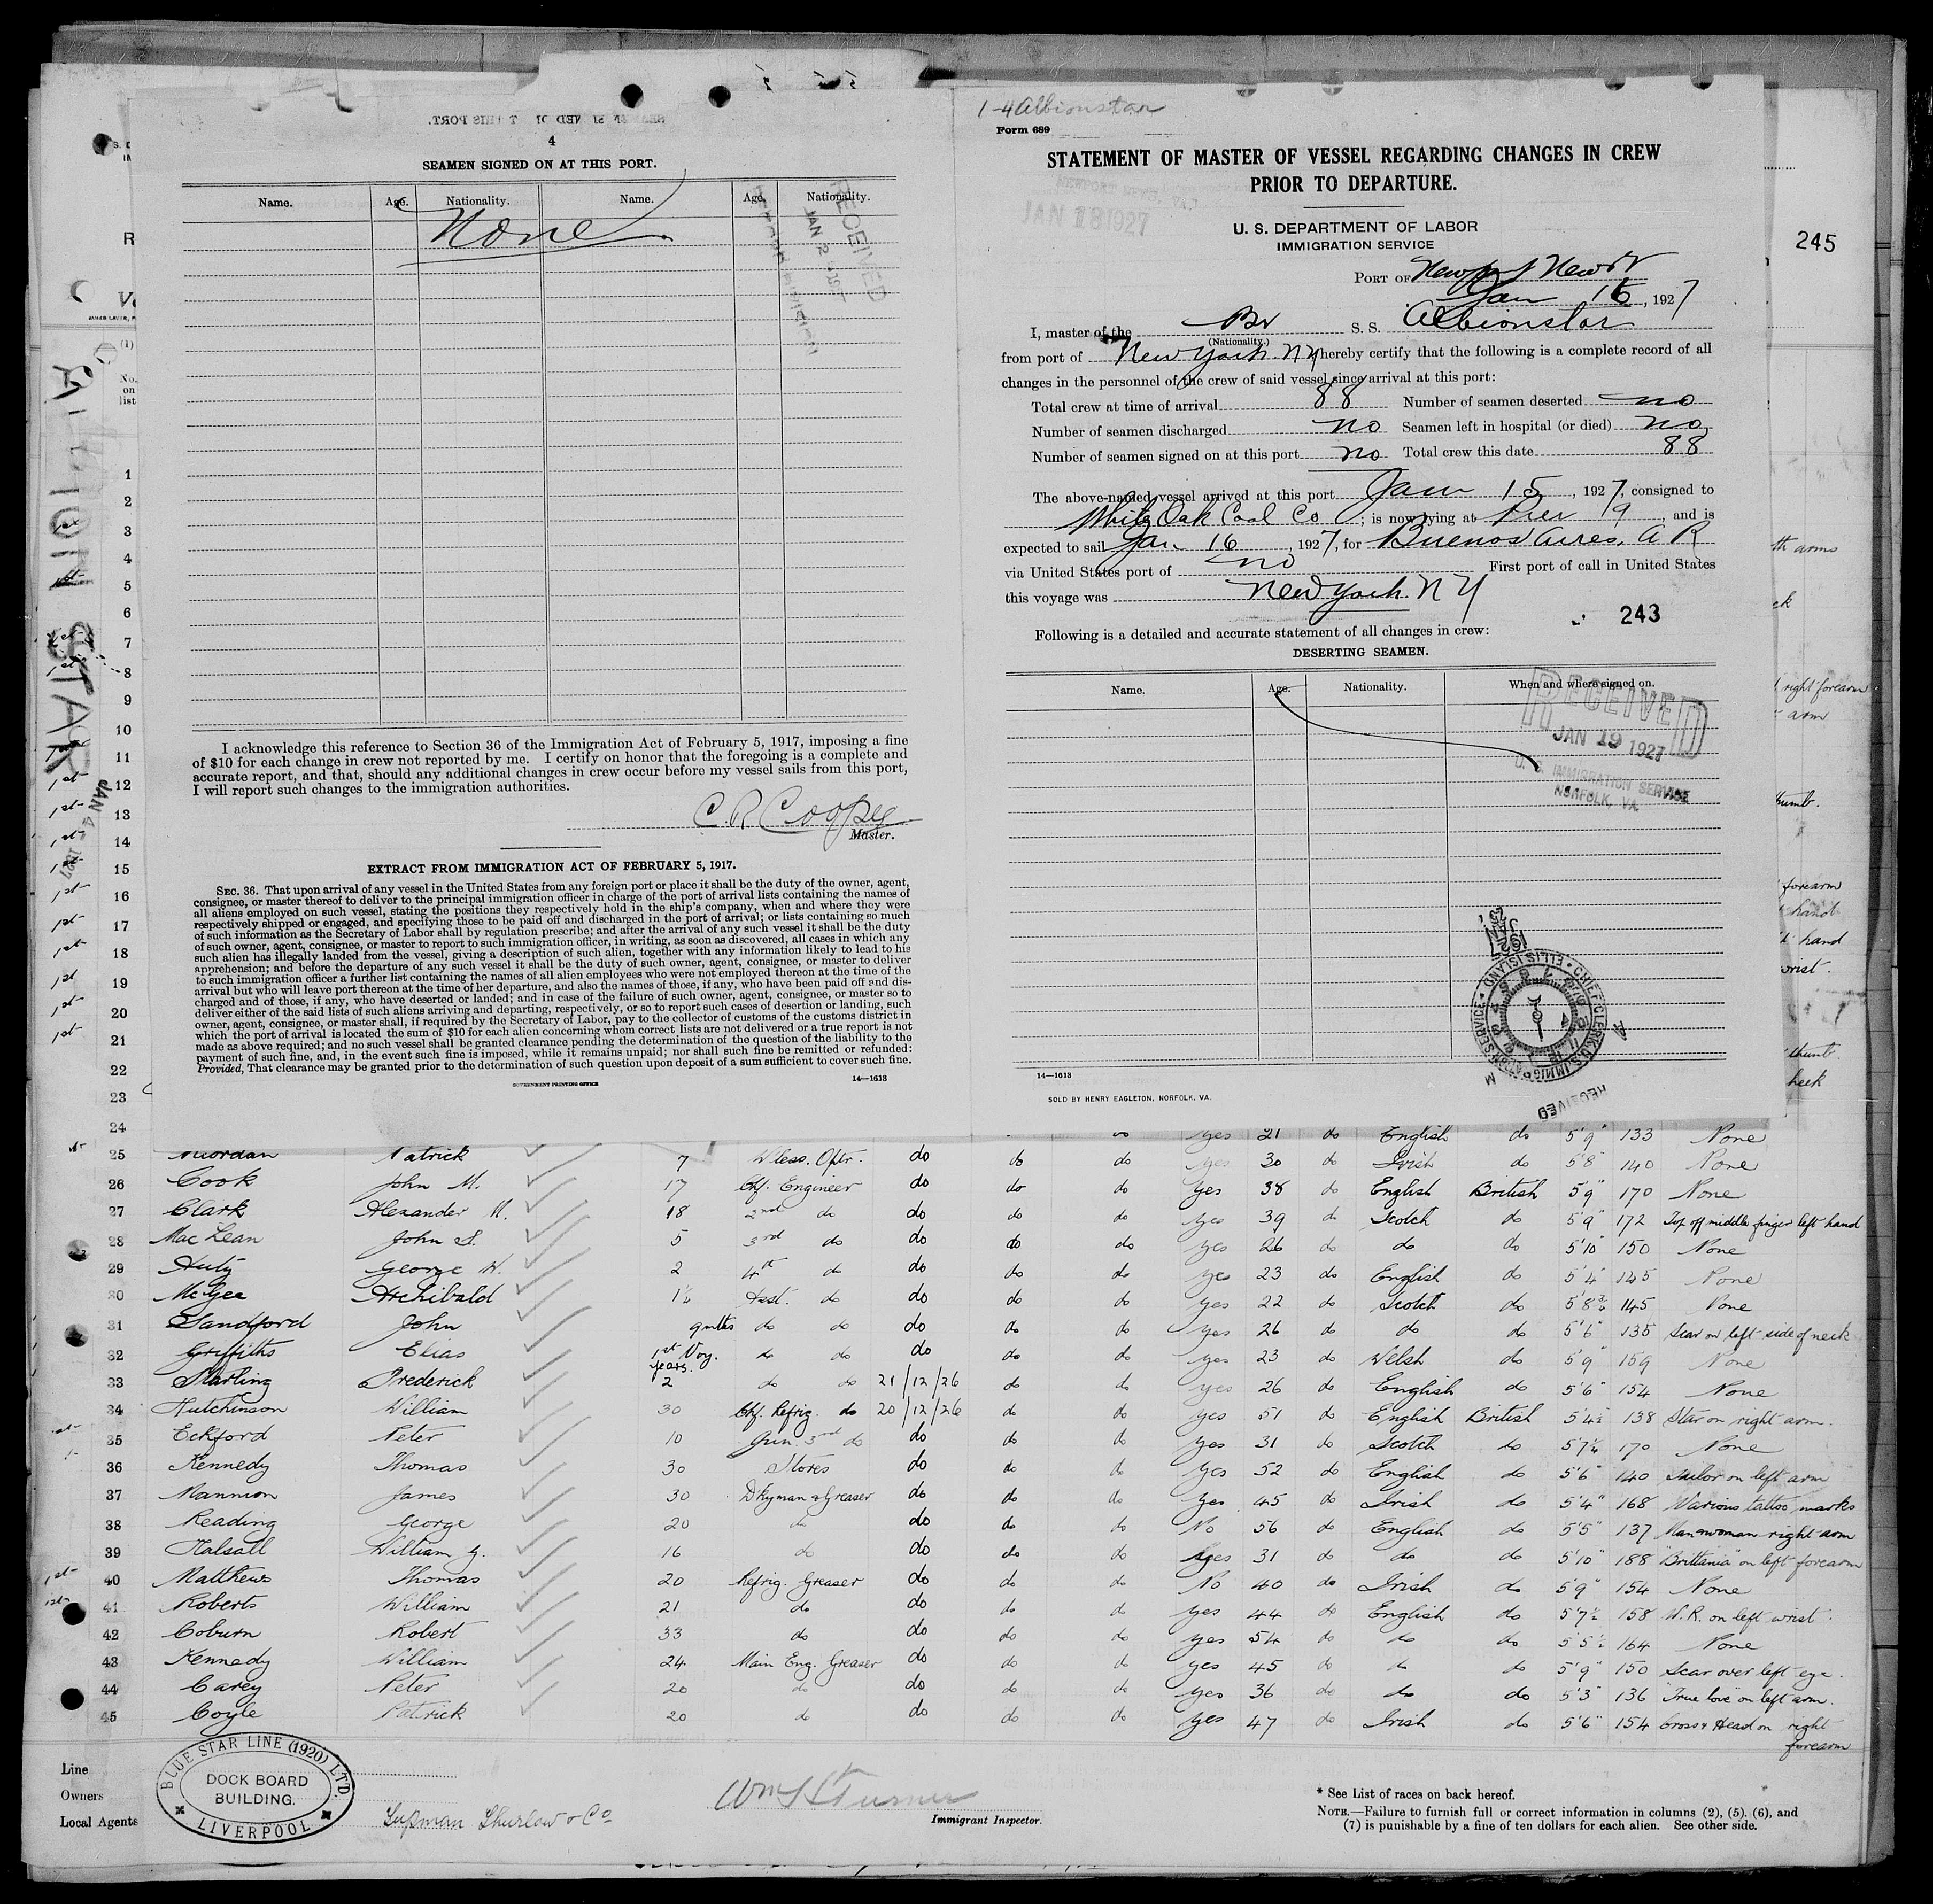 4
SEAMEN SIGNED ON AT THIS PORT.
Name. Age. Nationality. Name. Age. Nationality.
None
RECEIVED
JAN 2
I acknowledge this reference to Section 36 of the Immigration Act of February 5, 1917, imposing a fine
of $10 for each change in crew not reported by me. I certify on honor that the foregoing is a complete and
accurate report, and that, should any additional changes in crew occur before my vessel sails from this port,
I will report such changes to the immigration authorities.
C. R. Cooper
Master.
EXTRACT FROM IMMIGRATION ACT OF FEBRUARY 5, 1917.
SEC. 36. That upon arrival of any vessel in the United States from any foreign port or place it shall be the duty of the owner, agent,
consignee, or master thereof to deliver to the principal immigration officer in charge of the port of arrival lists containing the names of
all aliens employed on such vessel, stating the positions they respectively hold in the ship's company, when and where they were
respectively shipped or engaged, and specifying those to be paid off and discharged in the port of arrival; or lists containing so much
of such information as the Secretary of Labor shall by regulation prescribe; and after the arrival of any such vessel it shall be the duty
of such owner, agent, consignee, or master to report to such immigration officer, in writing, as soon as discovered, all cases in which any
such alien has illegally landed from the vessel, giving a description of such alien, together with any information likely to lead to his
apprehension; and before the departure of any such vessel it shall be the duty of such owner, agent, consignee, or master to deliver
to such immigration officer a further list containing the names of all alien employees who were not employed thereon at the time of the
arrival but who will leave port thereon at the time of her departure, and also the names of those, if any, who have been paid off and dis-
charged and of those, if any, who have deserted or landed; and in case of the failure of such owner, agent, consignee, or master so to
deliver either of the said lists of such aliens arriving and departing, respectively, or so to report such cases of desertion or landing, such
owner, agent, consignee, or master shall, if required by the Secretary of Labor, pay to the collector of customs of the customs district in
which the port of arrival is located the sum of $10 for each alien concerning whom correct lists are not delivered or a true report is not
made as above required; and no such vessel shall be granted clearance pending the determination of the question of the liability to the
payment of such fine, and, in the event such fine is imposed, while it remains unpaid; nor shall such fine be remitted or refunded:
Provided, That clearance may be granted prior to the determination of such question upon deposit of a sum sufficient to cover such fine.
GOVERNMENT PRINTING OFFICE 14—1613
1-4 Albionstar
Form 689
STATEMENT OF MASTER OF VESSEL REGARDING CHANGES IN CREW
PRIOR TO DEPARTURE.
NEWPORT NEWS, VA.
JAN 18 1927
U. S. DEPARTMENT OF LABOR
IMMIGRATION SERVICE
245
PORT OF Newport News V
Jan 16, 1927
I, master of the Br S. S. Albionstar
(Nationality.)
from port of New York. N Y hereby certify that the following is a complete record of all
changes in the personnel of the crew of said vessel since arrival at this port:
Total crew at time of arrival 88 Number of seamen deserted no
Number of seamen discharged no Seamen left in hospital (or died) no
Number of seamen signed on at this port no Total crew this date 88
The above-named vessel arrived at this port Jan 15, 1927, consigned to
White Oak Coal Co; is now lying at Pier 19, and is
expected to sail Jan. 16, 1927, for Buenos Aires, A R
via United States port of no First port of call in United States
this voyage was New York. N Y
243
Following is a detailed and accurate statement of all changes in crew:
DESERTING SEAMEN.
Name. Age. Nationality. When and where signed on.
RECEIVED
JAN 19 1927
U. S. IMMIGRATION SERVICE
NORFOLK, VA.
CHIEF CLERK, U.S. IMMIGRATION SERVICE ELLIS ISLAND
RECEIVED
14—1613
SOLD BY HENRY EAGLETON, NORFOLK, VA.
ALBION STAR
JAN 4 - 1927
1
2
3
4
5
6
7
8
9
10
11
12
13
14
15
16
17
18
19
20
21
22
23
24 yes 21 do English do 5'9" 133 None
25 Riordan Patrick 7 Wless. Optr. do do do yes 30 do Irish do 5'8" 140 None
26 Cook John M. 17 Chf. Engineer do do do yes 38 do English British 5'9" 170 None
27 Clark Alexander M. 18 2nd do do do do yes 39 do Scotch do 5'9" 172 Top off middle finger left hand
28 Mac Lean John S. 5 3rd do do do do yes 26 do do do 5'10" 150 None
29 George W. 2 4th do do do do yes 23 do English do 5'4" 145 None
30 McGee Archibald 1½ Asst. do do do do yes 22 do Scotch do 5'8¾ 145 None
31 Sandford John 9 mths do do do do do yes 26 do do do 5'6" 135 Scar on left side of neck
32 Griffiths Elias 1st Voy. do do do do do yes 23 do Welsh do 5'9" 159 None
33 Starling Frederick years. 2 do do 21/12/26 do do yes 26 do English do 5'6" 154 None
34 Hutchinson William 30 Chf. Refrig. do 20/12/26 do do yes 51 do English British 5'4½ 138 Star on right arm.
35 Eckford Peter 10 Jun. 3rd do do do do yes 31 do Scotch do 5'7¼ 170 None
36 Kennedy Thomas 30 Stores do do do yes 52 do English do 5'6" 140 Sailor on left arm
37 Mannion James 30 Dkyman & Greaser do do do yes 45 do Irish do 5'4" 168 Various tattoo marks
38 Reading George 20 do do do do No 56 do English do 5'5" 137 Man & woman right arm
39 Halsall William G. 16 do do do do yes 31 do do do 5'10" 188 "Brittania" on left forearm
40 Matthews Thomas 20 Refrig. Greaser do do do No 40 do Irish do 5'9" 154 None
41 Roberts William 21 do do do do yes 44 do English do 5'7½ 158 W. R. on left wrist.
42 Coburn Robert 33 do do do do yes 54 do do do 5'5½ 164 None
43 Kennedy William 24 Main Eng. Greaser do do do yes 45 do do do 5'9" 150 Scar over left eye.
44 Carey Peter 20 do do do do yes 36 do do do 5'3" 136 "True love" on left arm.
45 Coyle Patrick 20 do do do do yes 47 do Irish do 5'6" 154 Cross & Head on right
forearm
Line
Owners
Local Agents
BLUE STAR LINE (1920) LTD.
DOCK BOARD
BUILDING.
LIVERPOOL
& Co
Wm S Turner
Immigrant Inspector.
* See List of races on back hereof.
NOTE.—Failure to furnish full or correct information in columns (2), (5), (6), and
(7) is punishable by a fine of ten dollars for each alien. See other side.